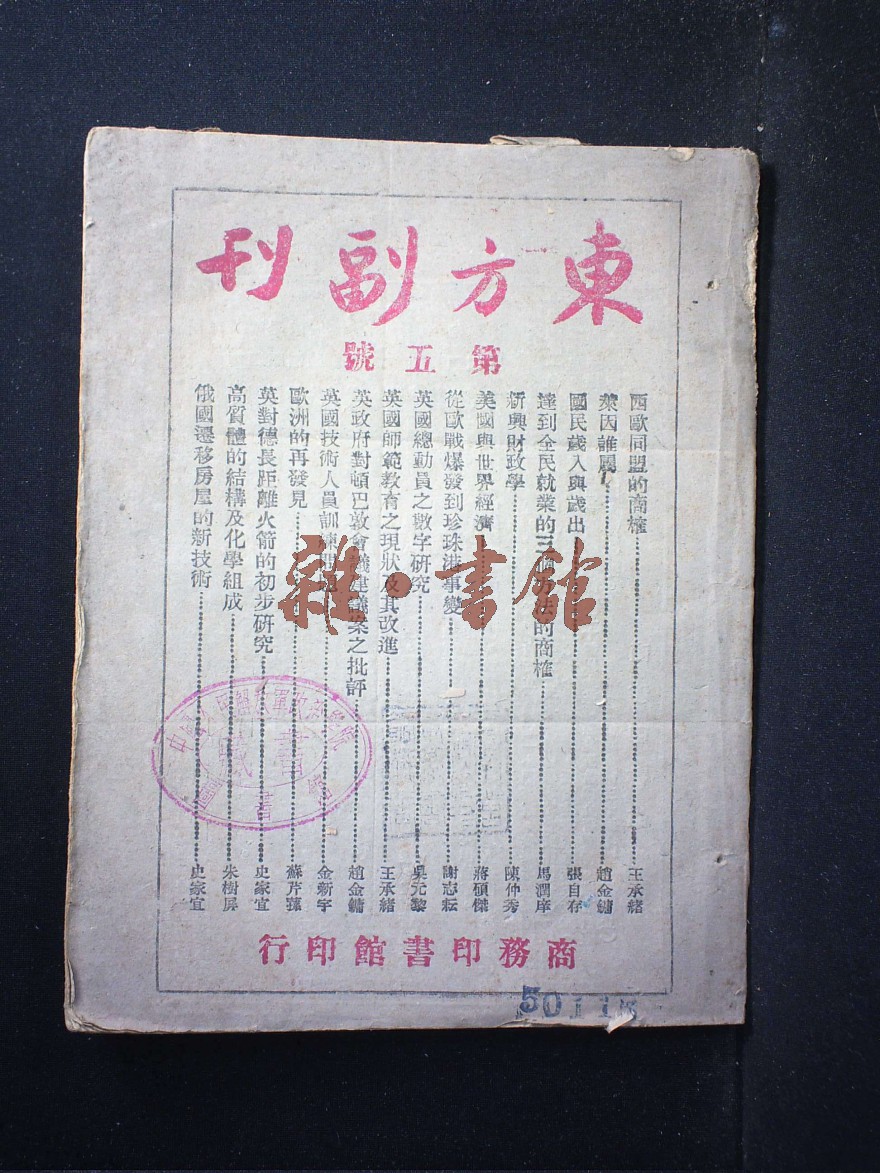 東方副刊
第五號
西歐同盟的商榷 王承緒
萊因誰屬 趙金鏞
國民歲入與歲出 張自存
達到全民就業的三個方法的商榷 馬潤庠
新興財政學 陳仲秀
美國與世界經濟 蔣碩傑
從歐戰爆發到珍珠港事變 謝志耘
英國總動員之數字研究 吳元黎
英國師範教育之現狀及其改進 王承緒
英政府對頓巴敦會議建議案之批評 趙金鏞
英國技術人員訓練 金新宇
歐洲的再發見 蘇芹蓀
英對德長距離火箭的初步研究 史家宜
高質體的結構及化學組成 朱樹屏
俄國遷移房屋的新技術 史家宜
商務印書館印行
雜·書館
藏書
50116